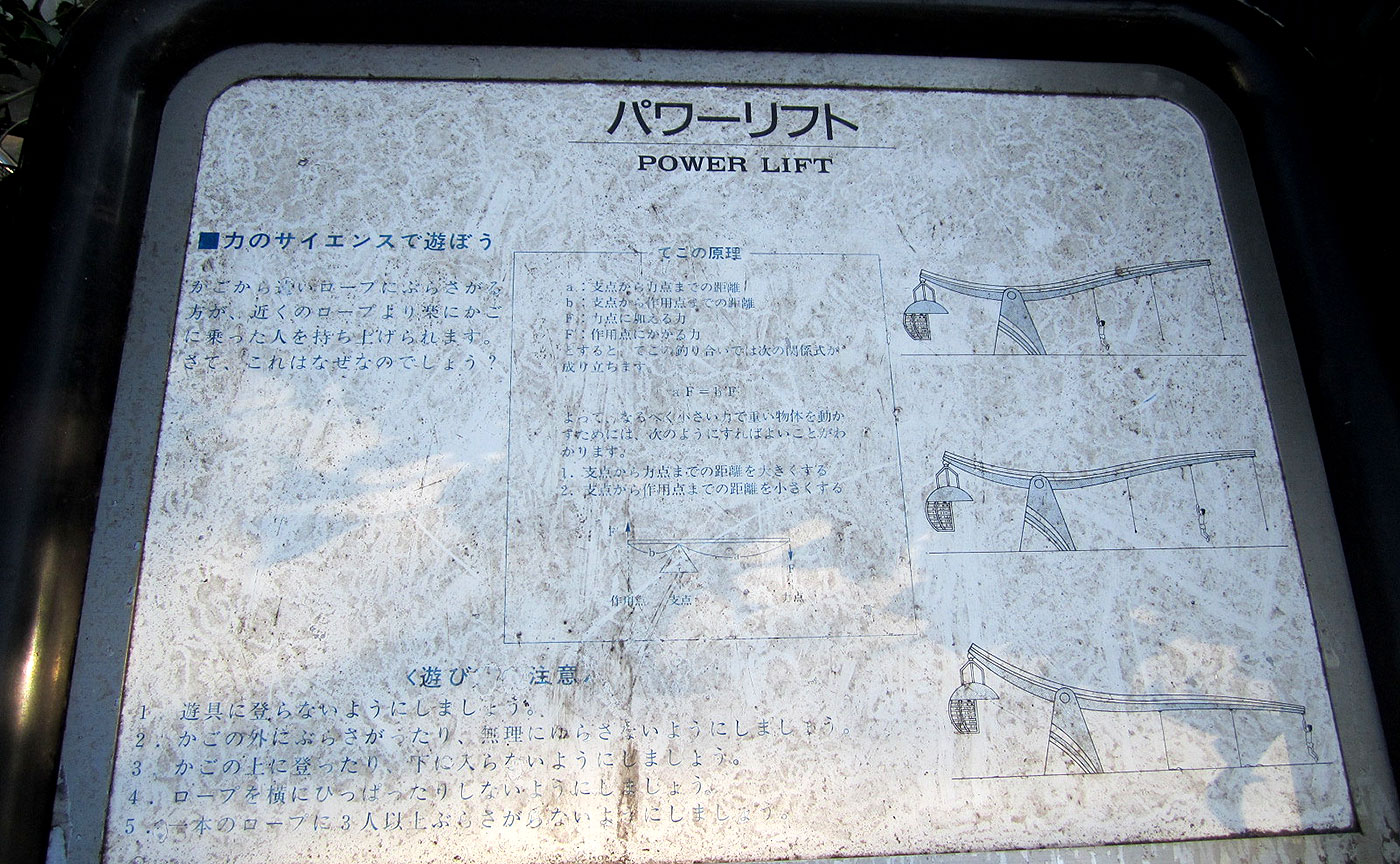 パワーリフト
POWER LIFT
■力のサイエンスで遊ぼう
かごから遠いロープにぶらさがる
方が、近くのロープより楽にかご
に乗った人を持ち上げられます。
さて、これはなぜなのでしょう？
てこの原理
a：支点から力点までの距離
b：支点から作用点までの距離
F：力点に加える力
F：作用点にかかる力
とすると、てこの釣り合いでは次の関係式が
成り立ちます。
aF=bF
よって、なるべく小さい力で重い物体を動か
すためには、次のようにすればよいことがわ
かります。
1．支点から力点までの距離を大きくする
2．支点から作用点までの距離を小さくする
F
b
F
作用点 支点 点
〈遊び 注意〉
1．遊具に登らないようにしましょう。
2．かごの外にぶらさがったり、無理にゆらさないようにしましょう。
3．かごの上に登ったり、下に入らないようにしましょう。
4．ロープを横にひっぱったりしないようにしましょう。
5．一本のロープに3人以上ぶらさがらないようにしましょう。